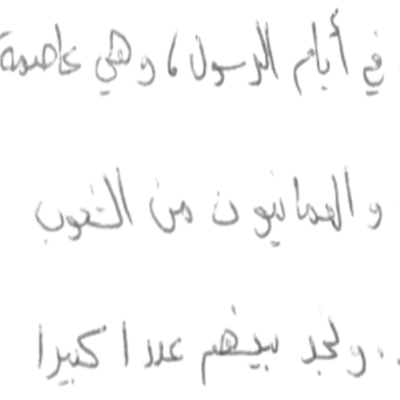 في أيام الرسول، وهي عاصمة
والعمانيون من الشعوب
. ونجد بينهم عددا كبيرا